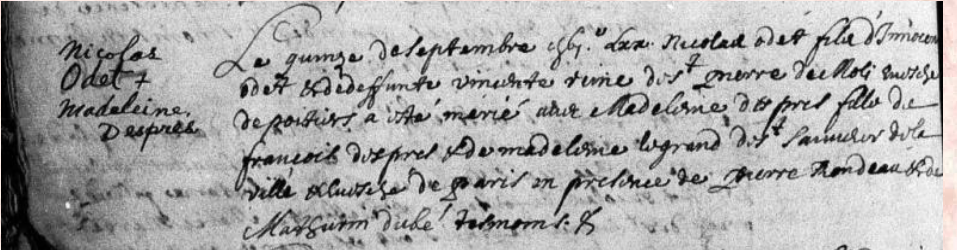 Nicolas
Odet +
Madeleine
Despres
Le quinze de septembre Lxx. Nicolas odet fils d'Innocent
odet & de deffunte vincente reine de st pierre de evesché
de poitiers a esté marié avec Madeleine despres fille de
francois despres & de madeleine le grand de st sauveur de la
ville & evesché de paris en presence de pierre Rondeau & de
Mathurin dubé tesmoins. &